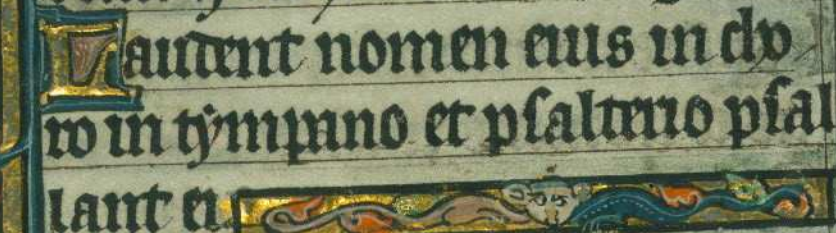 Laudent nomen eius in cho
ro in tympano et psalterio psal
lant ei